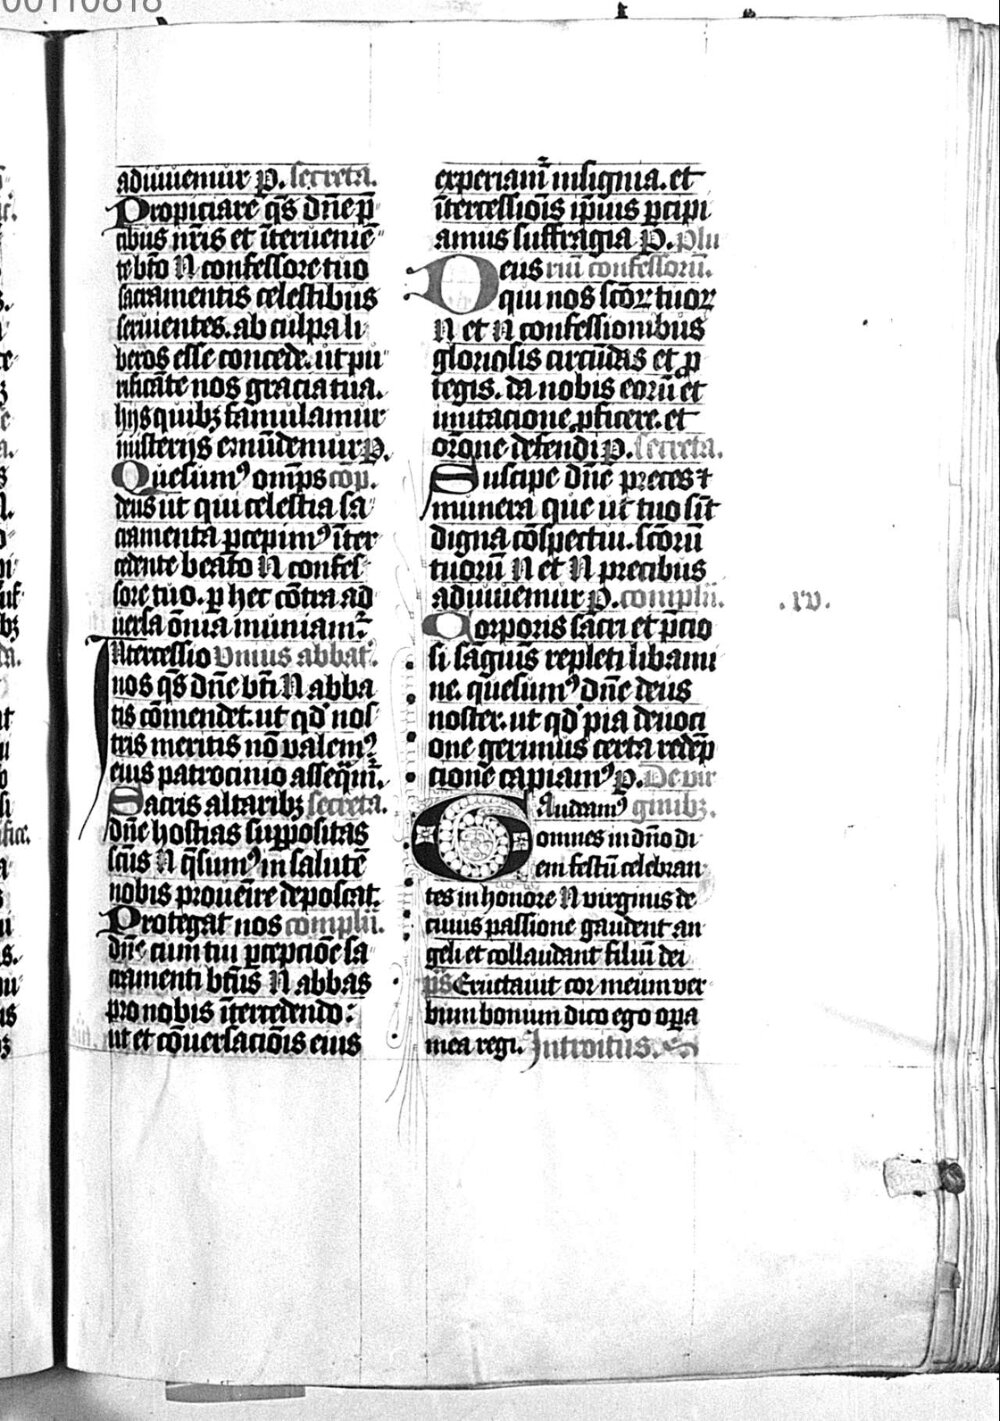 00110818
adiuuemur P. secreta.
Propiciare qs dn̄e p̄
cibus nr̄is et īteruenīē
te bt̄o N confessore tuo
sacramentis celestibus
seruientes. ab culpa li
beros esse concede. ut pu
rificāte nos gracia tua.
hijs quibꝫ famulamur
misterijs emūdemur P.
Quesumꝰ om̄ps cōp.
deus ut qui celestia sa
cramenta ꝑcepimꝰ īter
cedente beato N confes
sore tuo. ꝑ hec cōtra ad
uersa ōnia muniamᷣ
Intercessio Vnius abbat̄.
nos qs dn̄e bt̄i N abba
tis cōmendet. ut qd̄ nos
tris meritis nō valemꝰ
eius patrocinio asseq̄m̄.
Sacris altaribꝫ secreta.
dn̄e hostias suppositas
sc̄us N q̄sumꝰ in salutē
nobis prouēire deposcat.
Protegat nos complīī.
dn̄e cum tui ꝑcepciōe sa
cramenti bt̄us N abbas
pro nobis ītercedendo:
ut et cōuersaciōis eius
experiam̄ insignia. et
ītercessiōis ip̄ius ꝑcipi
amus suffragia P. Plu
Deus riū confessorū.
qui nos sc̄oꝝ tuoꝝ
N et N confessionibus
gloriosis circūdas et ꝓ
tegis. da nobis eorū et
imitacione ꝓficere. et
or̄one defendi P. secreta.
Suscipe dn̄e preces ⁊
munera que ut tuo sīt
digna cōspectui. sc̄orū
tuorū N et N precibus
adiuuemur P. complīī.
.xv.
Corporis sacri et p̄cio
si sāguīs repleti libami
ne. quesumꝰ dn̄e deus
noster. ut qd̄ pia deuoci
one gerimus certa redēp
cione capiamꝰ P. De vir
Gaudeamꝰ ginibꝫ.
omnes in dn̄o di
em festū celebran
tes in honore N virginis de
cuius passione gaudent an
geli et collaudant filiū dei
p̄s Eructauit cor meum ver
bum bonum dico ego oꝑa
mea regi. Introitus.